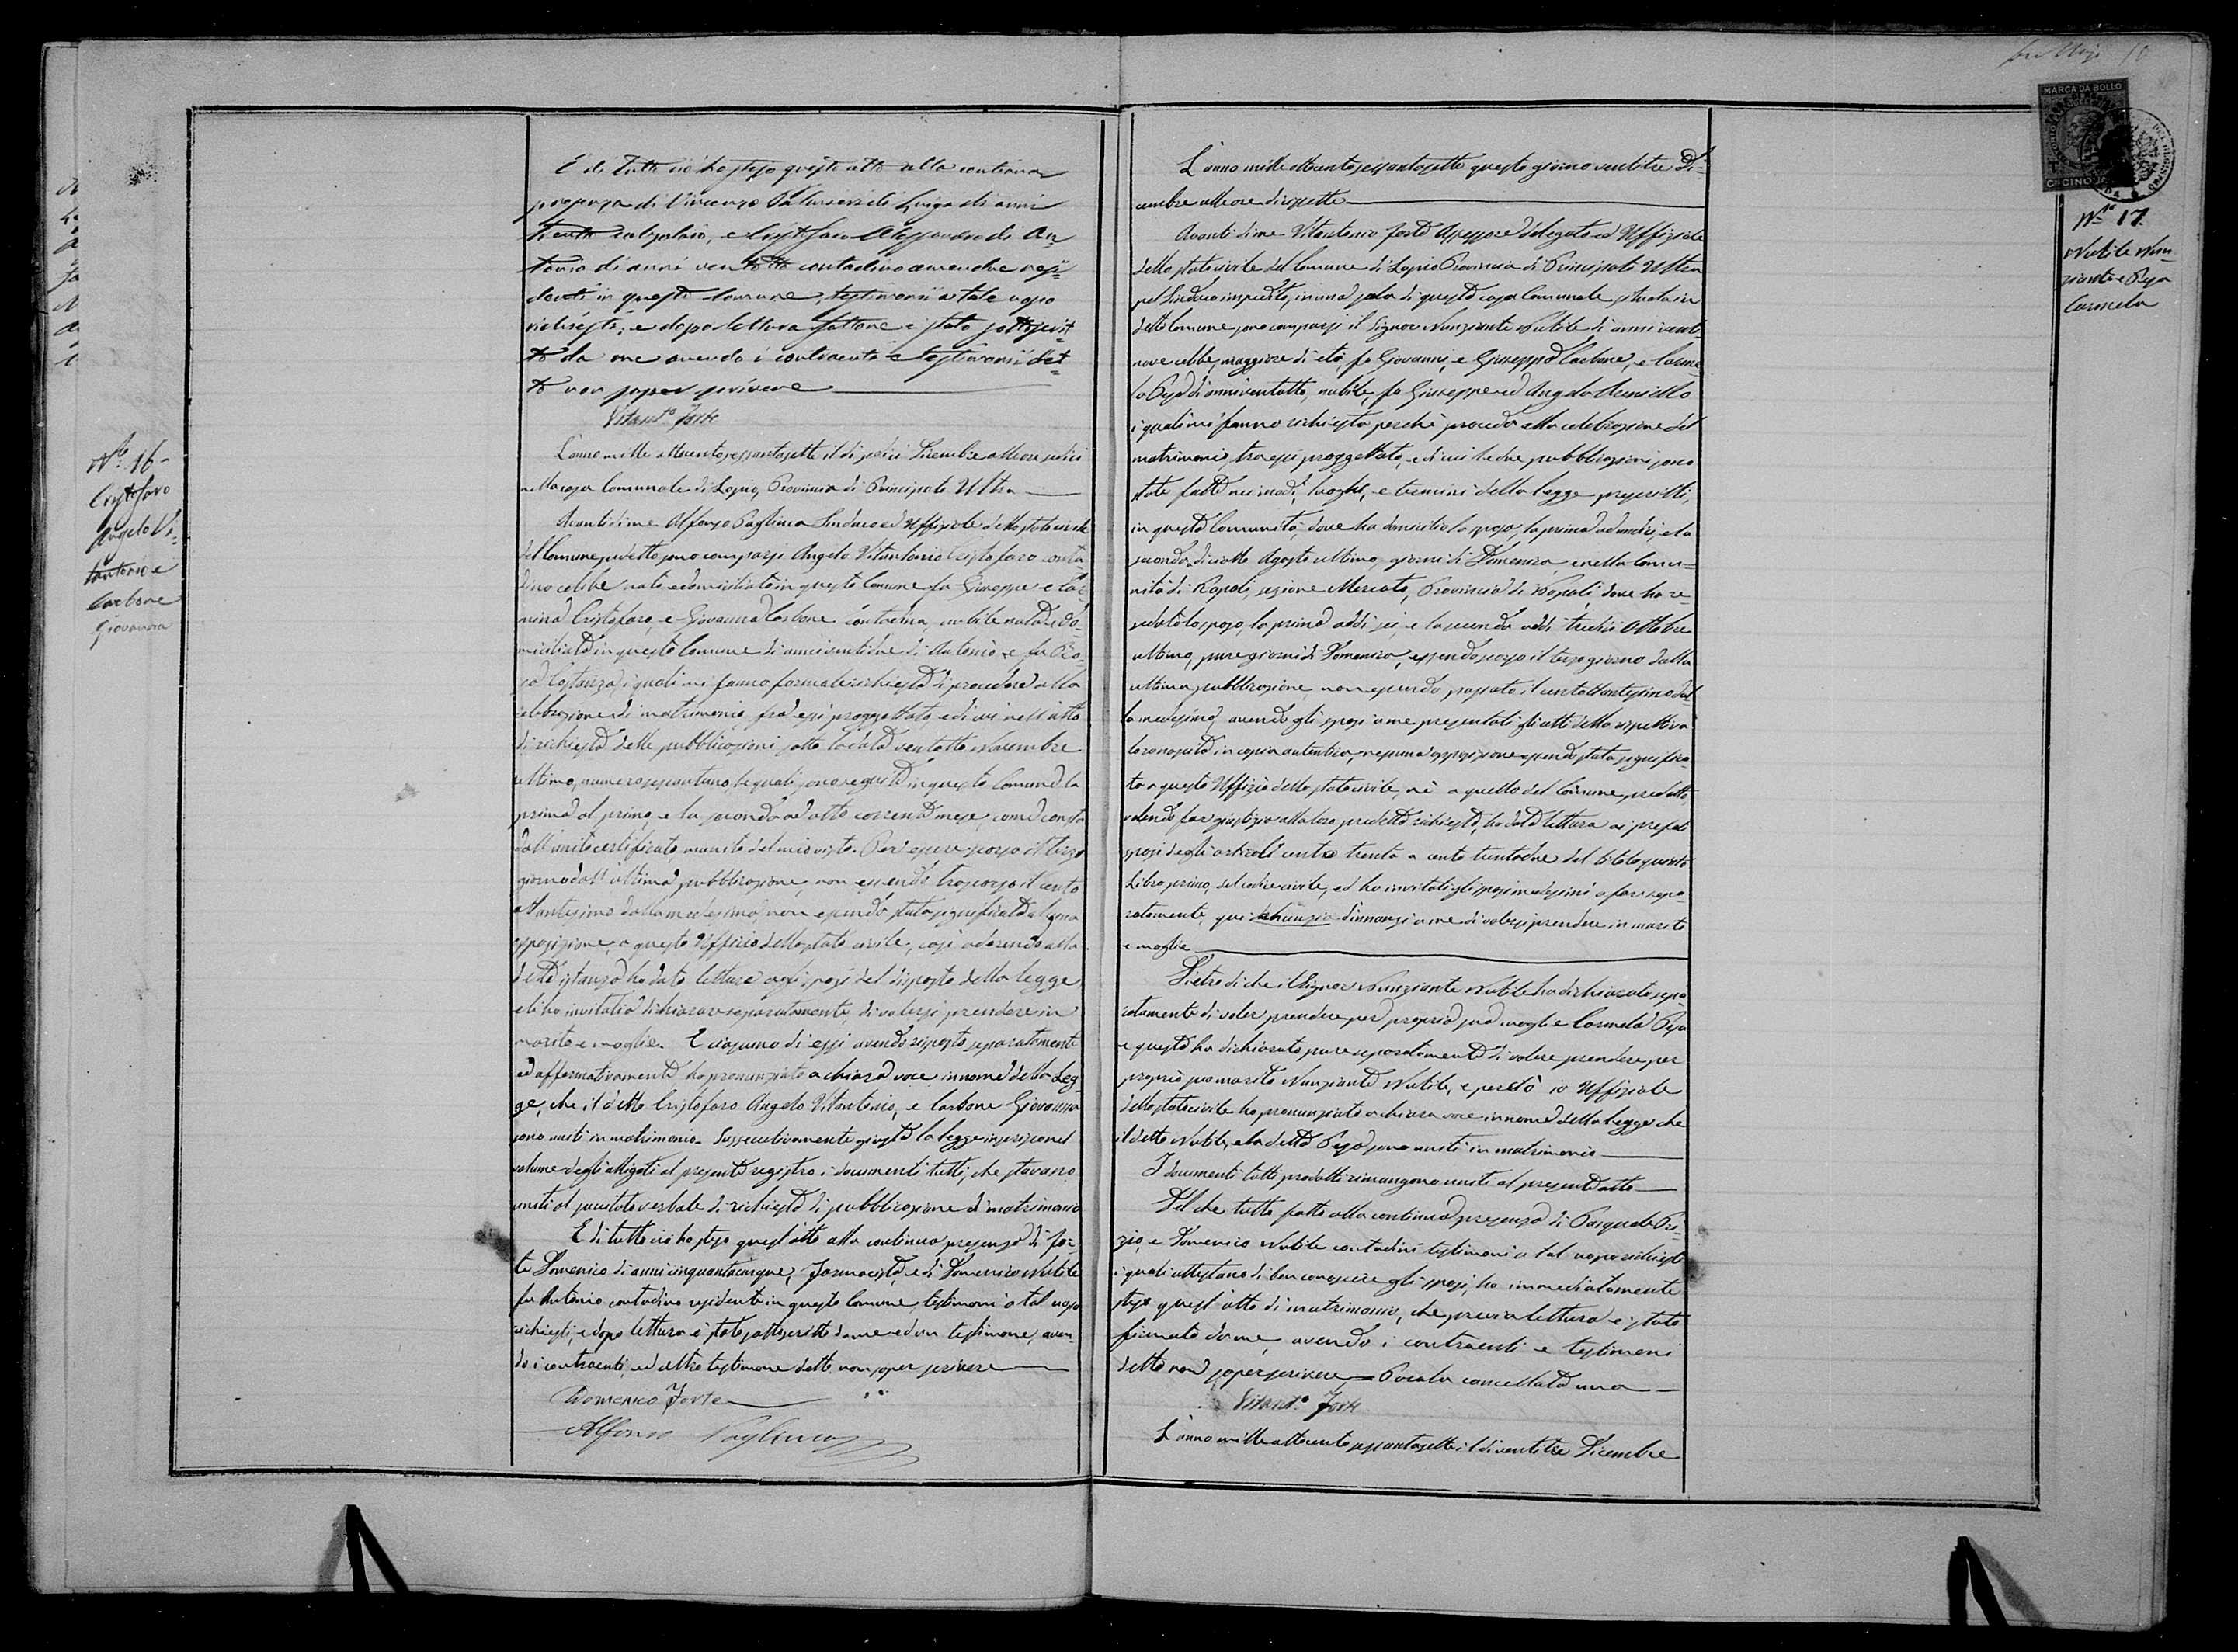 E di tutto ciò ho steso quest'atto alla continua
presenza di Vincenzo di Luigi di anni
trenta calzolaio, e Cristofaro Alessandro di An
tonio di anni ventotto contadino amendue resi=
denti in questo Comune, testimonii a tale uopo
richiesti; e dopo lettura fattone è stato sottoscrit=
to da me avendo i contraenti e testimonii det=
to non saper scrivere
Vitant.o Forte
N.o 16
Cristofaro
Angelo Vi=
tantonio e
Carbone
Giovanna
L'anno mille ottocento sessantasette il dì sedici Dicembre alle ore sedici
nella casa Comunale di Lapio, Provincia di Principato Ultra
Avanti di me Alfonso Pagliuca Sindaco ed Uffiziale dello stato civile
del Comune sudetto sono comparsi Angelo Vitantonio Cristofaro conta=
dino celibe nato e domiciliato in questo Comune fu Giuseppe e Car=
mina Cristofaro, e Giovanna Carbone contadina, nubile nata e do=
miciliata in questo Comune di anni ventidue di Antonio e fu Ro=
sa Costanza, i quali mi fanno formale richiesta di procedere alla
celebrazione di matrimonio fra essi proggettato, e di cui nell'atto
di richiesta delle pubblicazioni sotto la data ventotto Novembre
ultimo, numero sessantuno, le quali sono seguite in questo Comune la
prima al primo, e la seconda ad otto corrente mese, come consta
dall'unito certificato munito del mio visto. Per essere scorso il terzo
giorno dall'ultima pubblicazione, non essendo trascorso il cento
ottantesimo dalla medesima, non essendo stata significata alcuna
opposizione, a questo Uffizio dello stato civile, così aderendo alla
detta istanza ho dato lettura agli sposi del disposto della legge
e li ho invitati a dichiarare separatamente, di volersi prendere in
marito e moglie. E ciascuno di essi avendo risposto separatamente
ed affermativamente ho pronunziato a chiara voce in nome della Leg=
ge, che il detto Cristofaro Angelo Vitantonio, e Carbone Giovanna
sono uniti in matrimonio. Successivamente giusta la legge inserisco nel
volume degli alligati al presente registro i documenti tutti, che stavano
uniti al succitato verbale di richiesta di pubblicazione di matrimonio
E di tutto ciò ho steso quest'atto alla continua presenza di For=
te Domenico di anni cinquantacinque, Farmacista, e di Domenico Nutile
fu Antonio contadino residenti in questo Comune, testimoni a tal uopo
richiesti, e dopo lettura è stato sottoscritto da me ed un testimone, aven=
do i contraenti, ed altro testimone detto non saper scrivere
Domenico Forte
Alfonso Pagliuca
MARCA DA BOLLO
N.o 17
Nutile Nun=
ziante e Pesa
Carmela
L'anno mille ottocento sessantasette questo giorno ventitre Di=
cembre alle ore diciassette
Avanti di me Vitantonio Forte Assessore delegato ed Uffiziale
dello stato civile del Comune di Lapio Provincia di Principato Ultra
pel Sindaco impedito, in una sala di questa casa Comunale situata in
detto Comune, sono comparsi il Signor Nunziante Nutile di anni venti
nove celibe, maggiore di età, fu Giovanni, e Giuseppa Carbone, e Carme
la Pesa di anni ventotto, nubile, fu Giuseppe ed Angela
i quali mi fanno richiesta perchè proceda alla celebrazione del
matrimonio, tra essi proggettato, e di cui le due pubblicazioni sono
state fatte nei modi, luoghi, e termini della legge prescritti,
in questa Comunità, dove ha domicilio la sposa, la prima ad undici, e la
seconda, diciotto Agosto ultimo giorni di Domenica, e nella Comu=
nità di Napoli, sezione Mercato, Provincia di Napoli, dove ha re=
sidenza lo sposo, la prima addi sei, e la seconda addi tredici Ottobre
ultimo, pure giorni di Domenica, essendo scorso il terzo giorno dalla
ultima pubblicazione, non essendo passato il centottantesimo dal
la medesima, avendo gli sposi a me presentati gli atti della rispettiva
loro nascita in copia autentica, nessuna opposizione essendo stata significa=
ta a questo Uffizio dello stato civile, nè a quello del Comune predetto
volendo far giustizia alla loro predetta richiesta, ho data lettura ai prefati
sposi degli articoli cento trenta a cento trentadue del titolo quinto
Libro primo, del codice civile, ed ho invitati gli sposi medesimi a fare sepa=
ratamente, qui dinnanzi a me di volersi prendere in marito
e moglie
Dietro di che il Signor Nunziante Nutile ha dichiarato sepa=
ratamente di voler prendere per propria sua moglie Carmela Pesa
e questa ha dichiarato pure separatamente di volere prendere per
proprio suo marito Nunziante Nutile, e perciò io Uffiziale
dello stato civile ho pronunziato a chiara voce in nome della legge che
il detto Nutile, e la detta Pesa sono uniti in matrimonio
I documenti tutti prodotti rimangono uniti al presente atto
Del che tutto fatto alla continua presenza di Pasquale
zio, e Domenico Nutile contadini testimoni a tal uopo richiesti
i quali attestano di ben conoscere gli sposi, ho immediatamente
steso quest'atto di matrimonio, che previa lettura è stato
firmato da me, avendo i contraenti e testimoni
detto non saper scrivere = Parola cancellata una
Vitant.o Forte
L'anno mille ottocento sessantasette il dì ventitre Dicembre